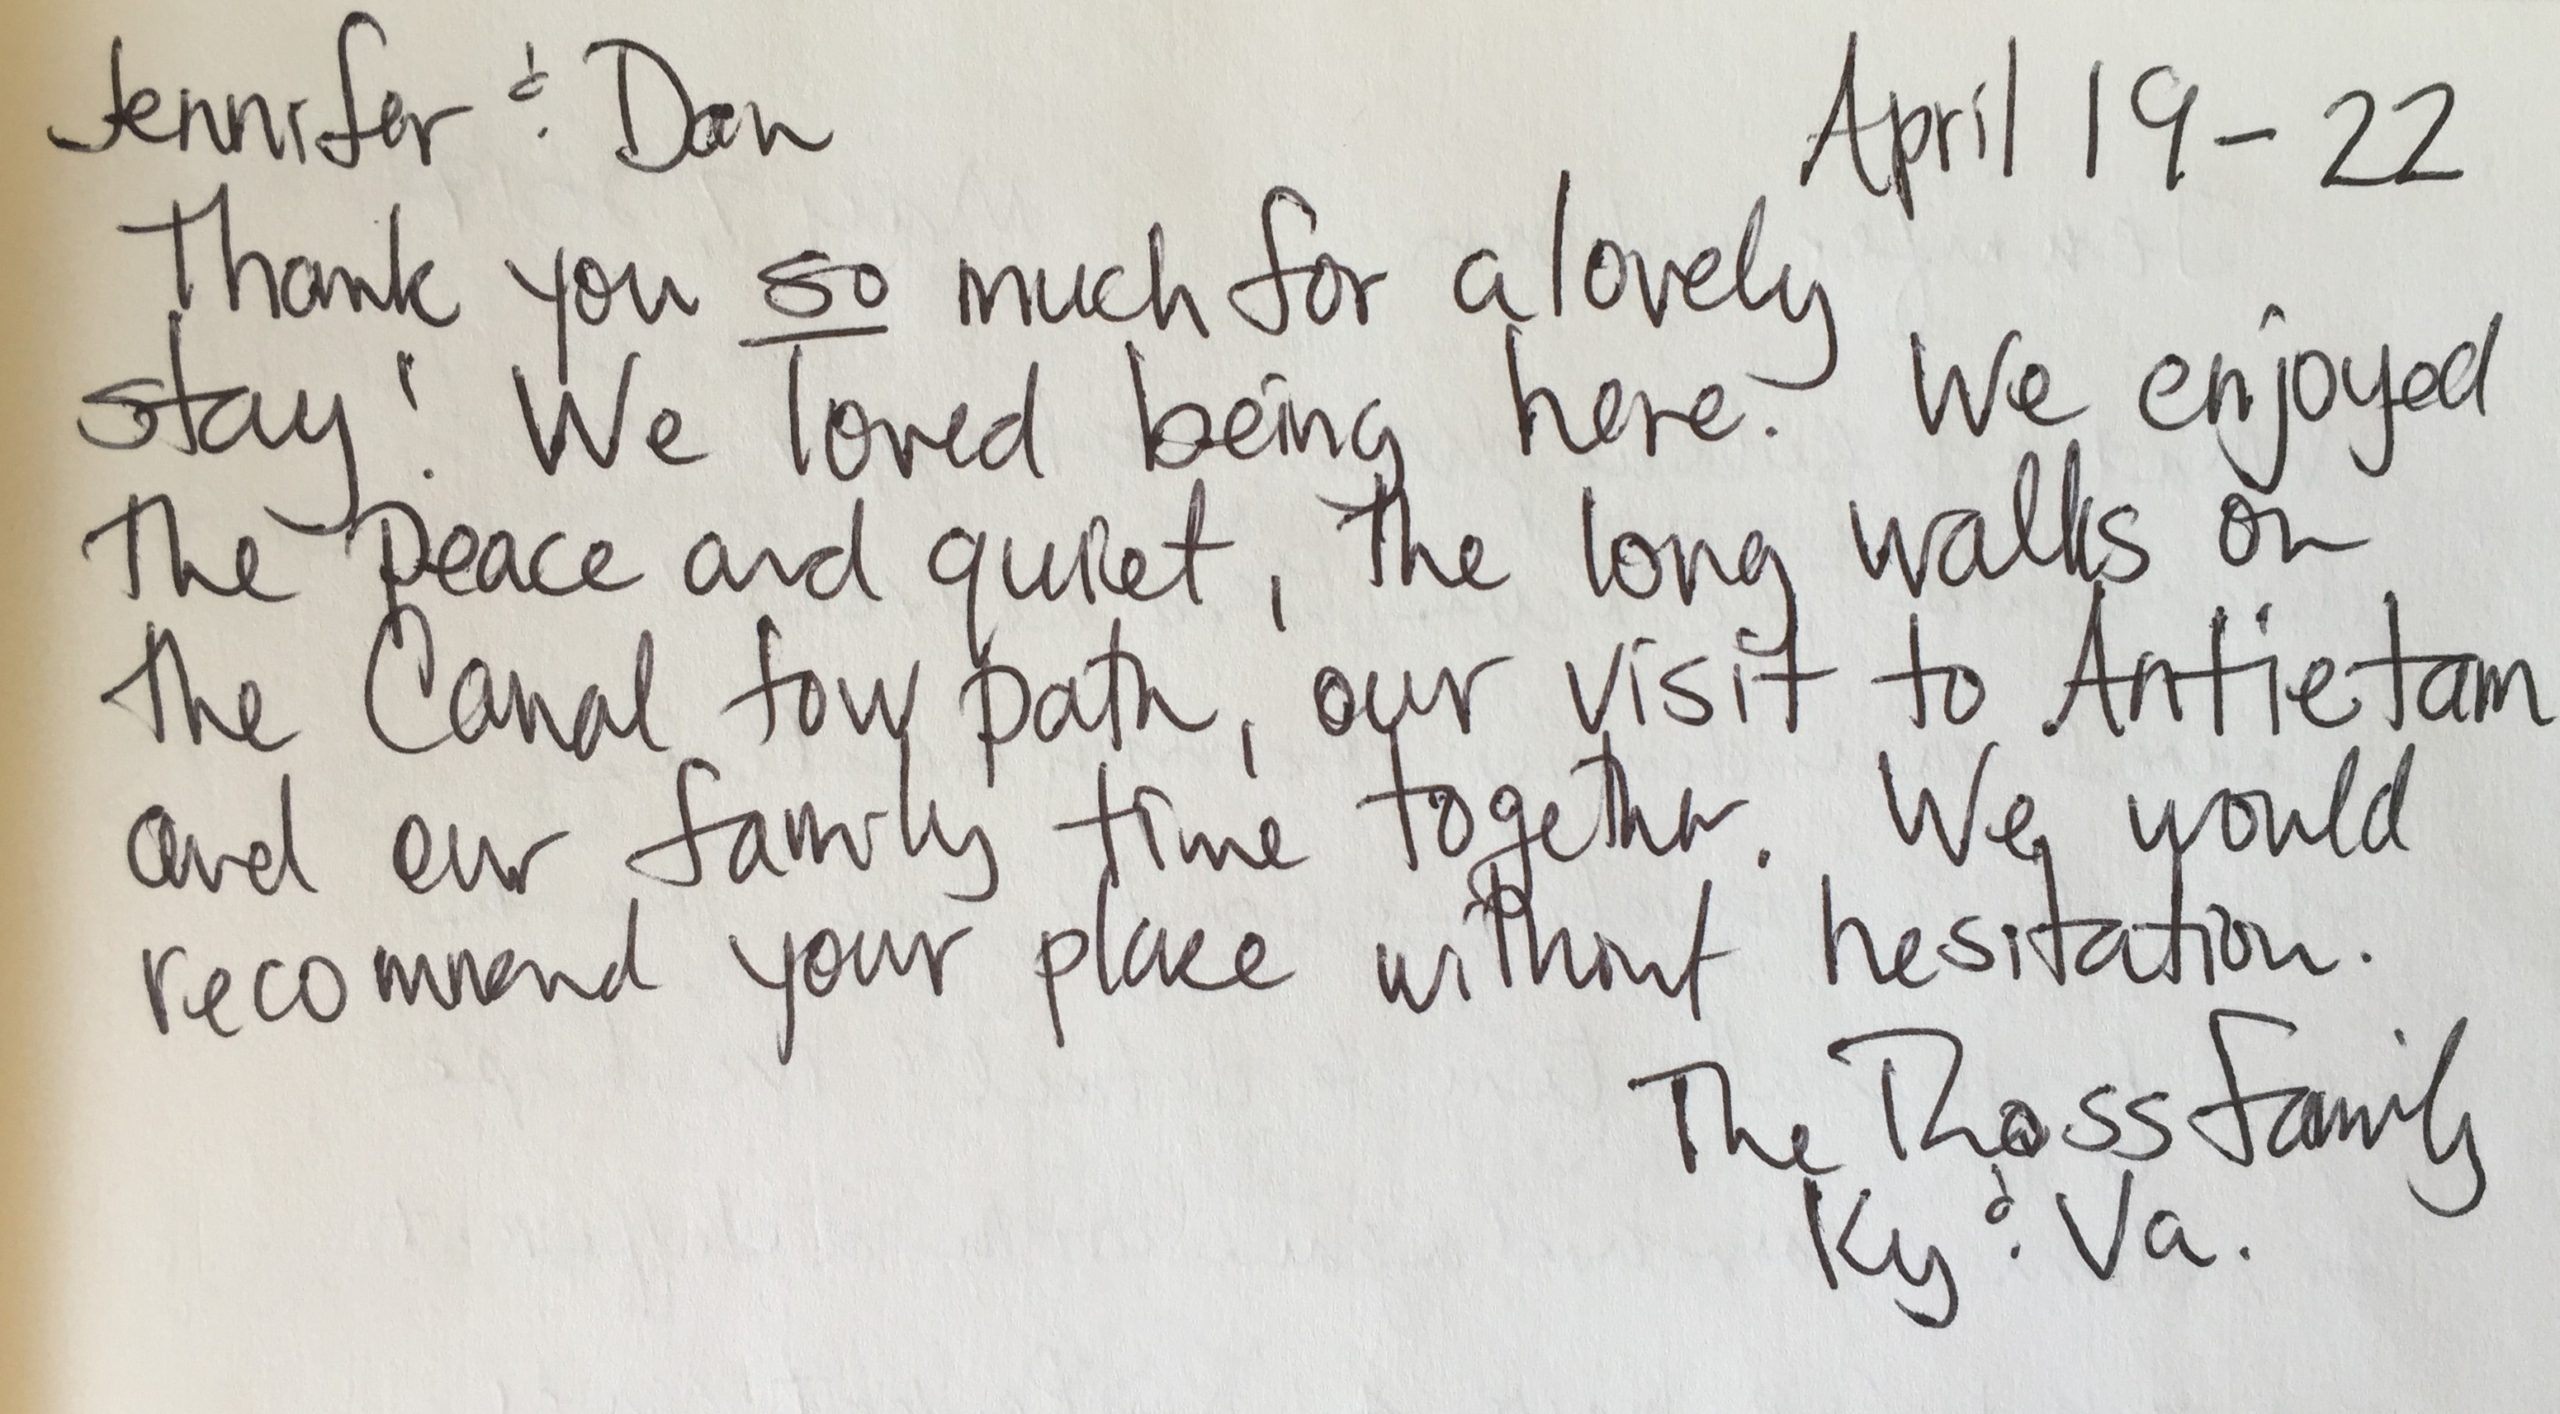 Jennifer & Dan April 19-22
Thank you so much for a lovely
stay! We loved being here. We enjoyed
the peace and quiet, the long walks on
the Canal tow path, our visit to Antietam
and our family time together. We would
recommend your place without hesitation.
The family
Ky & Va.